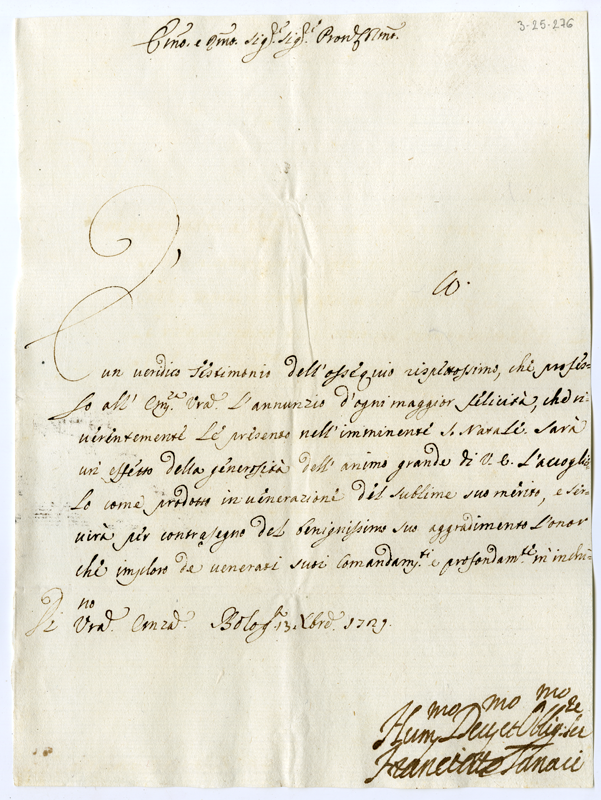 3-25-276
Emo. e Rmo. Sig.r Sig.r Pron. Colmo.
È un veridico testimonio dell'ossequio rispettosissimo, che profes-
so all' Em.za Vra. L'annunzio d'ogni maggior felicità, che ri-
verentemente Le presento nell'imminente S. Natale. Sarà
un effetto della generosità dell'animo grande di V. E. L'accoglier-
lo come prodotto in venerazione del sublime suo merito, e ser-
virà per contrasegno del benignissimo suo aggradimento L'onor
che imploro de venerati suoi Comandam.ti e profondam.te m'inchi-
no
Di Vra. Emza. Bolog.a 13. Xbre. 1729.
Hum.mo Dev.mo et Oblig.mo Ser.re
Francesco Tanari